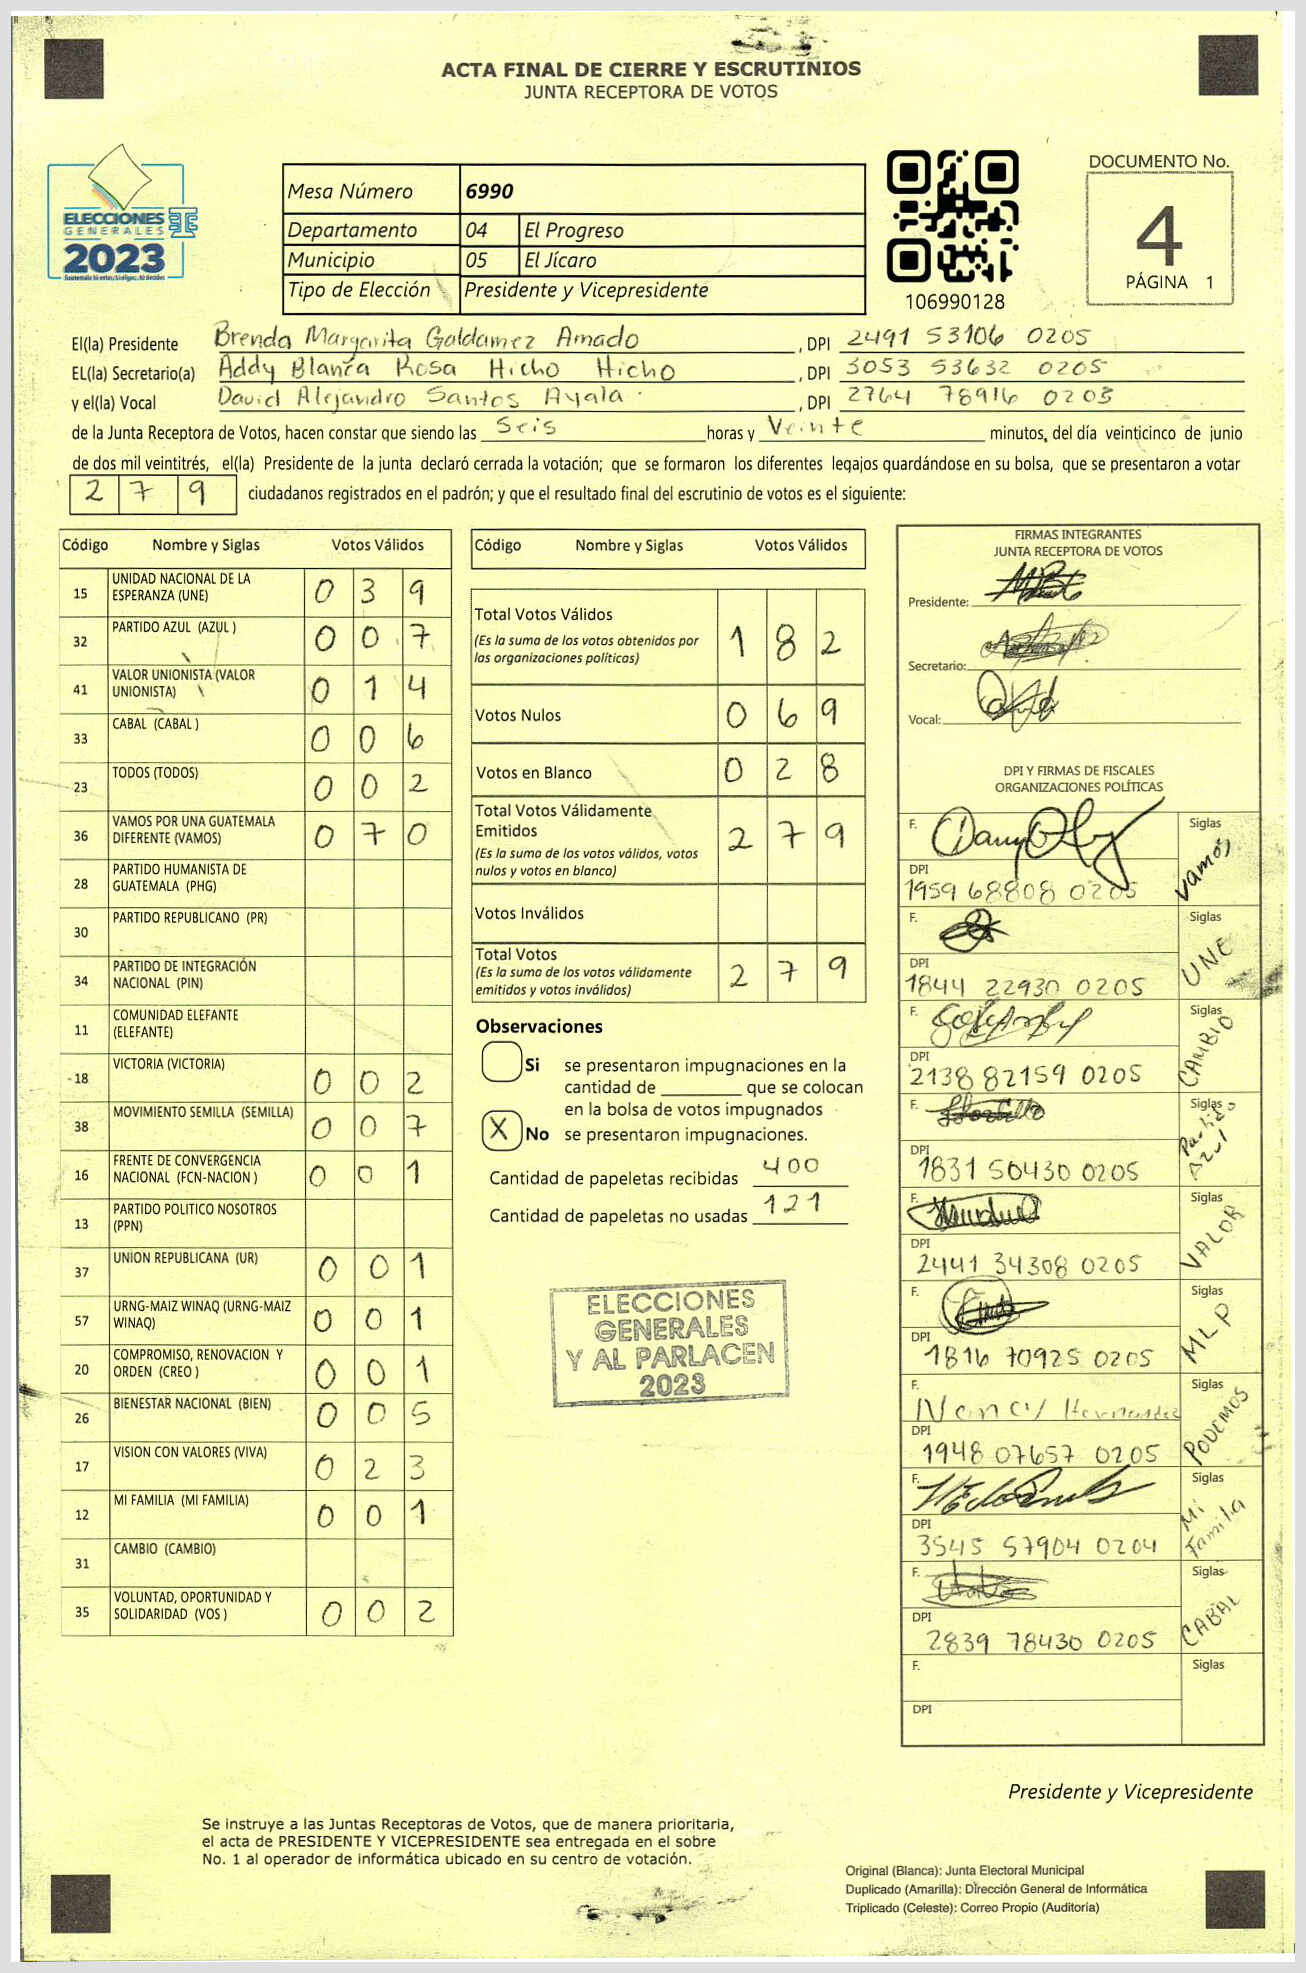 ACTA FINAL DE CIERRE Y ESCRUTINIOS
JUNTA RECEPTORA DE VOTOS
ELECCIONES
GENERALES
2023
Mesa Número 6990
Departamento 04 El Progreso
Municipio 05 El Jícaro
Tipo de Elección Presidente y Vicepresidente
106990128
DOCUMENTO No.
4
PÁGINA 1
El(la) Presidente Brenda Margarita Galdamez Amado, DPI 2491 53106 0205
EL(la) Secretario(a) Addy Blanca Rosa Hicho Hicho, DPI 3053 53632 0205
y el(la) Vocal David Alejandro Santos Ayala, DPI 2764 78916 0203
de la Junta Receptora de Votos, hacen constar que siendo las Seis horas y Veinte minutos, del día veinticinco de junio
de dos mil veintitrés, el(la) Presidente de la junta declaró cerrada la votación; que se formaron los diferentes legajos guardándose en su bolsa, que se presentaron a votar
279 ciudadanos registrados en el padrón; y que el resultado final del escrutinio de votos es el siguiente:
Código Nombre y Siglas Votos Válidos
15 UNIDAD NACIONAL DE LA ESPERANZA (UNE) 0 3 9
32 PARTIDO AZUL (AZUL ) 0 0 7
41 VALOR UNIONISTA (VALOR UNIONISTA) 0 1 4
33 CABAL (CABAL ) 0 0 6
23 TODOS (TODOS) 0 0 2
36 VAMOS POR UNA GUATEMALA DIFERENTE (VAMOS) 0 7 0
28 PARTIDO HUMANISTA DE GUATEMALA (PHG)
30 PARTIDO REPUBLICANO (PR)
34 PARTIDO DE INTEGRACIÓN NACIONAL (PIN)
11 COMUNIDAD ELEFANTE (ELEFANTE)
18 VICTORIA (VICTORIA) 0 0 2
38 MOVIMIENTO SEMILLA (SEMILLA) 0 0 7
16 FRENTE DE CONVERGENCIA NACIONAL (FCN-NACION ) 0 0 1
13 PARTIDO POLITICO NOSOTROS (PPN)
37 UNION REPUBLICANA (UR) 0 0 1
57 URNG-MAIZ WINAQ (URNG-MAIZ WINAQ) 0 0 1
20 COMPROMISO, RENOVACION Y ORDEN (CREO ) 0 0 1
26 BIENESTAR NACIONAL (BIEN) 0 0 5
17 VISION CON VALORES (VIVA) 0 2 3
12 MI FAMILIA (MI FAMILIA) 0 0 1
31 CAMBIO (CAMBIO)
35 VOLUNTAD, OPORTUNIDAD Y SOLIDARIDAD (VOS ) 0 0 2
Código Nombre y Siglas Votos Válidos
Total Votos Válidos 1 8 2
(Es la suma de los votos obtenidos por
las organizaciones políticas)
Votos Nulos 0 6 9
Votos en Blanco 0 2 8
Total Votos Válidamente
Emitidos 2 7 9
(Es la suma de los votos válidos, votos
nulos y votos en blanco)
Votos Inválidos
Total Votos 2 7 9
(Es la suma de los votos válidamente
emitidos y votos inválidos)
Observaciones
Si se presentaron impugnaciones en la
cantidad de ________ que se colocan
en la bolsa de votos impugnados
X No se presentaron impugnaciones.
Cantidad de papeletas recibidas 400
Cantidad de papeletas no usadas 121
ELECCIONES
GENERALES
Y AL PARLACEN
2023
FIRMAS INTEGRANTES
JUNTA RECEPTORA DE VOTOS
Presidente:
Secretario:
Vocal:
DPI Y FIRMAS DE FISCALES
ORGANIZACIONES POLÍTICAS
F. Siglas Vamos
DPI 1959 68808 0205
F. Siglas UNE
DPI 1844 22930 0205
F. Siglas CAMBIO
DPI 2138 82159 0205
F. Siglas Partido Azul
DPI 1831 50430 0205
F. Siglas VALOR
DPI 2441 34308 0205
F. Siglas MLP
DPI 1816 70925 0205
F. Nancy Hernandez Siglas PODEMOS
DPI 1948 07657 0205
F. Siglas Mi Familia
DPI 3545 57904 0204
F. Siglas CABAL
DPI 2839 78430 0205
F. Siglas
DPI
Presidente y Vicepresidente
Se instruye a las Juntas Receptoras de Votos, que de manera prioritaria,
el acta de PRESIDENTE Y VICEPRESIDENTE sea entregada en el sobre
No. 1 al operador de informática ubicado en su centro de votación.
Original (Blanca): Junta Electoral Municipal
Duplicado (Amarilla): Dirección General de Informática
Triplicado (Celeste): Correo Propio (Auditoría)